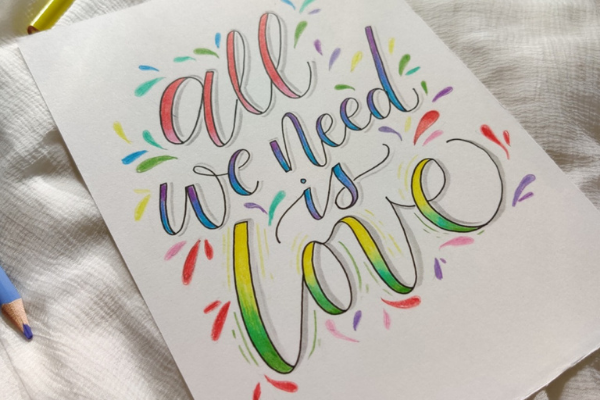 all
we need
is
love